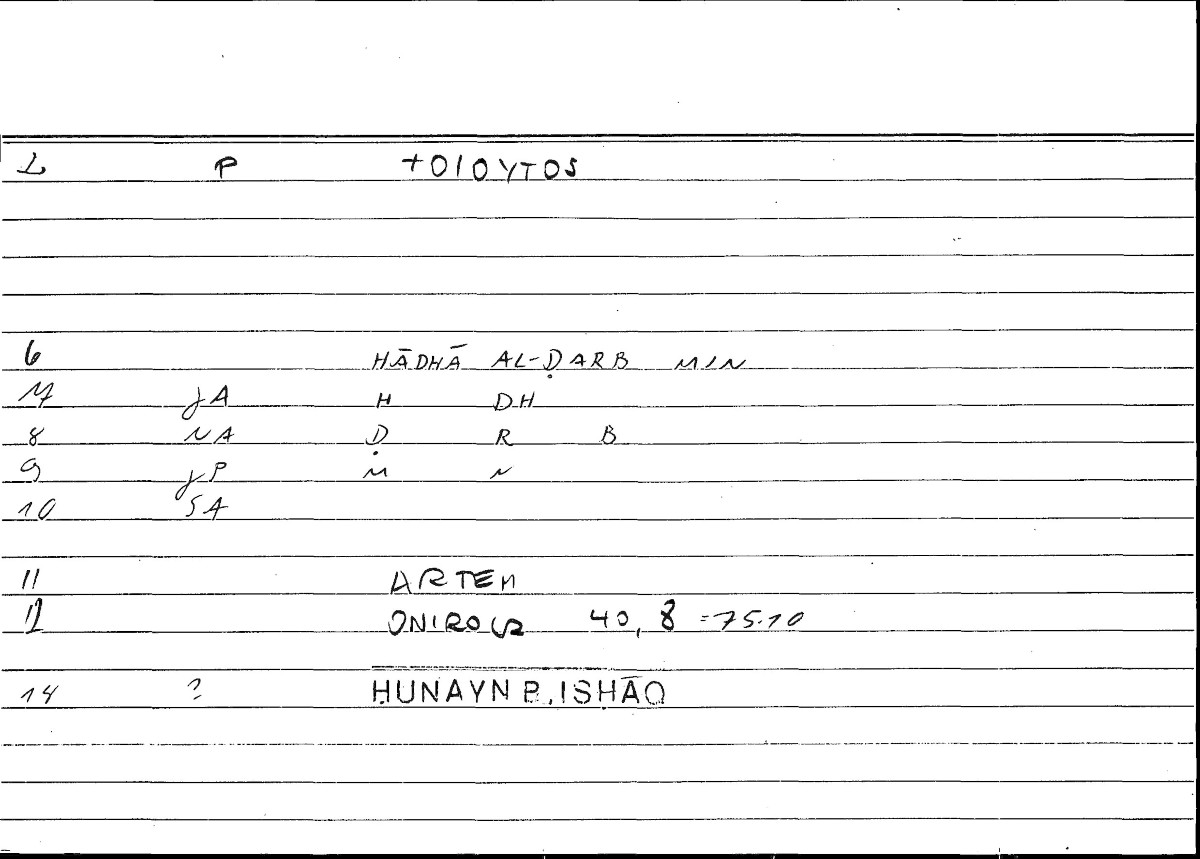 L P τοιουτος
6 HĀDHĀ AL-ḌARB MIN
7 JA H DH
8 NA Ḍ R B
9 JP M N
10 SA
11 ARTEM
12 ONIROCR 40, 8 = 75.10
14 ? ḤUNAYN B. ISḤĀQ